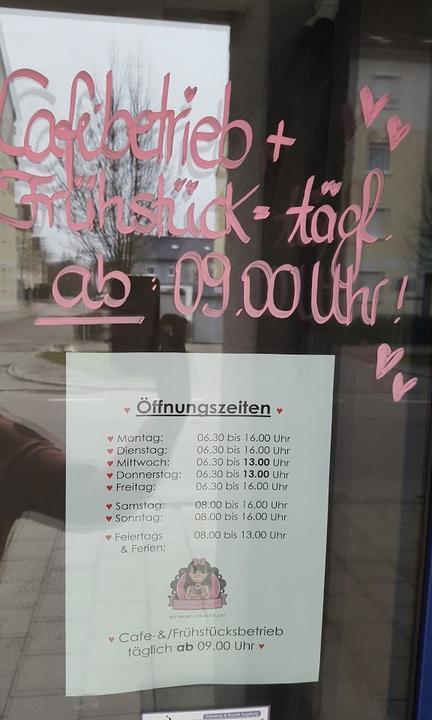 Cafébetrieb +
Frühstück = tägl.
ab: 09.00 Uhr!
Öffnungszeiten
Montag: 06.30 bis 16.00 Uhr
Dienstag: 06.30 bis 16.00 Uhr
Mittwoch: 06.30 bis 13.00 Uhr
Donnerstag: 06.30 bis 13.00 Uhr
Freitag: 06.30 bis 16.00 Uhr
Samstag: 08.00 bis 16.00 Uhr
Sonntag: 08.00 bis 16.00 Uhr
Feiertags 08.00 bis 13.00 Uhr
& Ferien:
Wir freuen uns auf Euch!
Cafe-&/Frühstücksbetrieb
täglich ab 09.00 Uhr